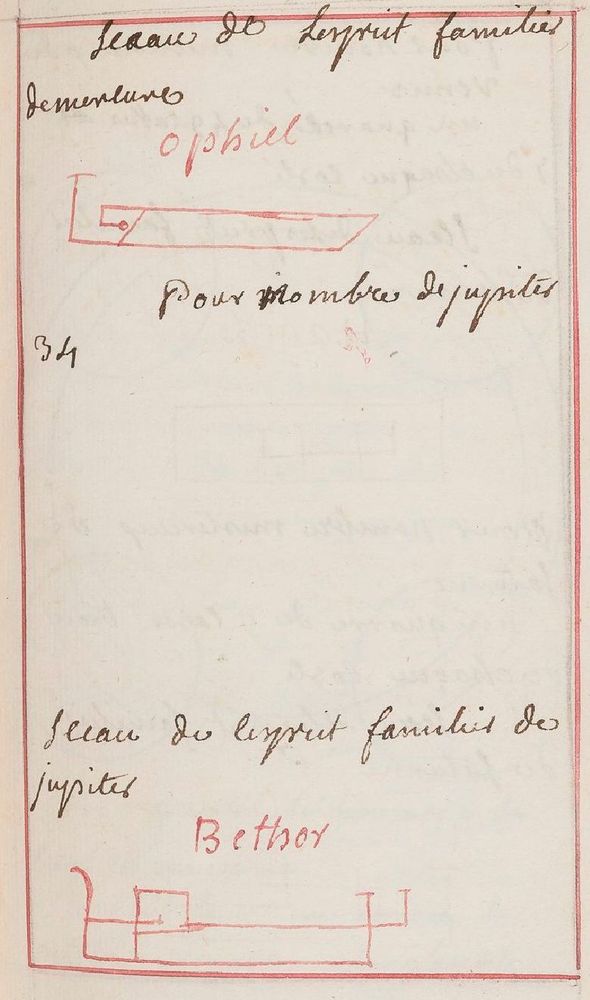 sceau de Lesprit familier
de mercure
ophiel
Pour Nombre de jupiter
34
sceau de lesprit familier de
jupiter
Bethor